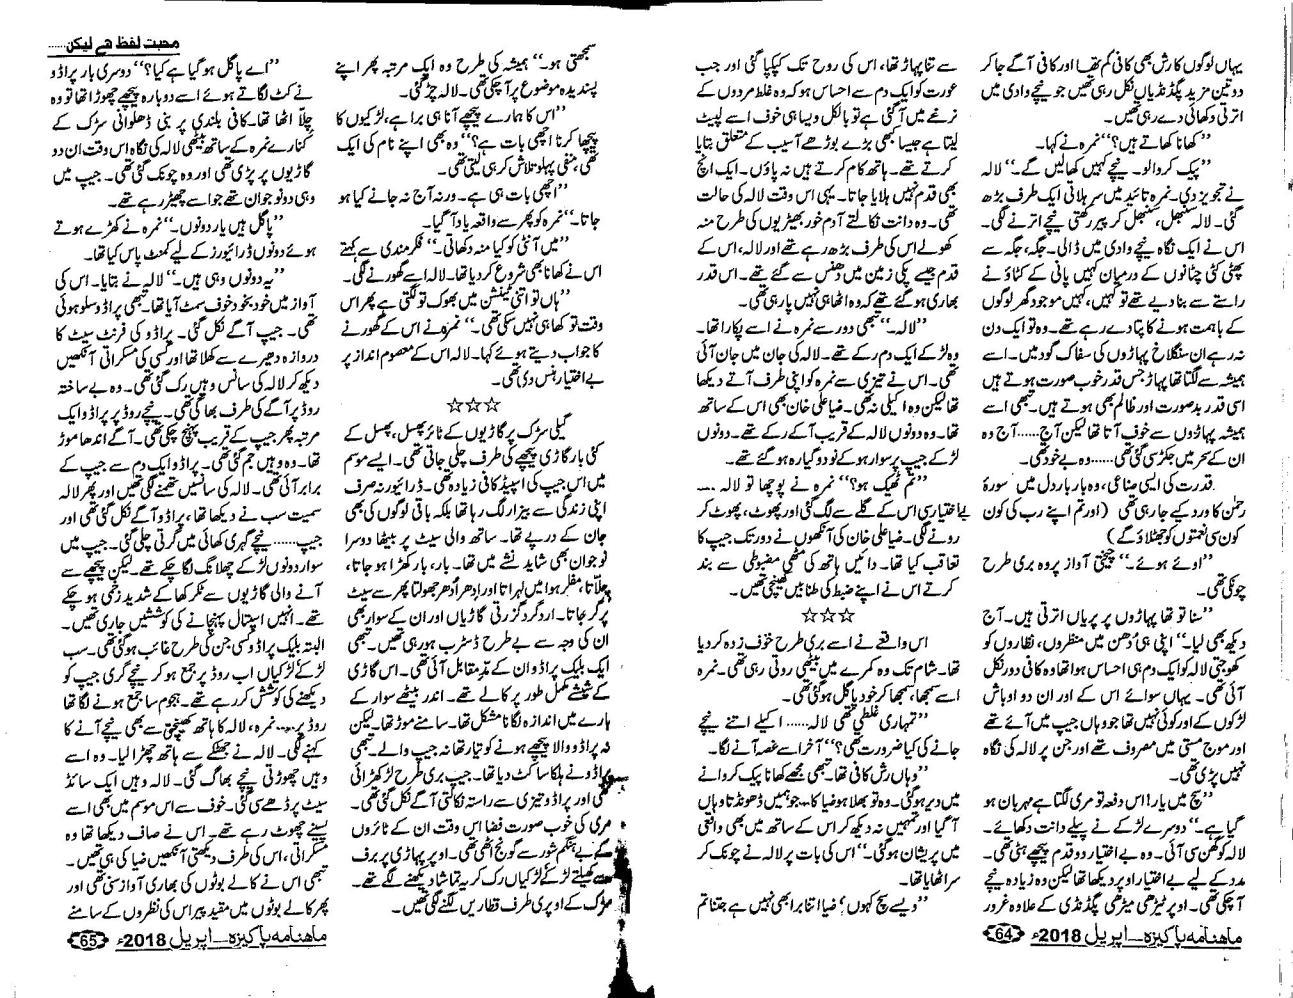 یہاں لوگوں کا رش بھی کافی کم تھا اور کافی آگے جا کر
دو تین مزید پگڈنڈیاں نکل رہی تھیں جو نیچے وادی میں
اترتی دکھائی دے رہی تھیں۔
”کھانا کھاتے ہیں؟“ نمرہ نے کہا۔
”پیک کروا لو۔ نیچے کہیں کھالیں گے۔“ لالہ
نے تجویز دی۔ نمرہ تائید میں سر ہلاتی ایک طرف بڑھ
گئی۔ لالہ سنبھل، سنبھل کر پیر رکھتی نیچے اترنے لگی۔
اس نے ایک نگاہ نیچے وادی میں ڈالی۔ جگہ، جگہ سے
پھٹی گئی چٹانوں کے درمیان کہیں پانی کے کٹاؤ نے
راستے سے بنا دیے تھے تو کہیں، کہیں موجود گھر لوگوں
کے باہمت ہونے کا پتا دے رہے تھے۔ وہ تو ایک دن
نہ رہے ان سنگلاخ پہاڑوں کی سفاک گود میں۔ اسے
ہمیشہ سے لگتا تھا پہاڑ جس قدر خوب صورت ہوتے ہیں
اسی قدر بدصورت اور ظالم بھی ہوتے ہیں۔ تبھی اسے
ہمیشہ پہاڑوں سے خوف آتا تھا لیکن آج...... آج وہ
ان کے سحر میں جکڑ سی گئی تھی...... وہ بے خود تھی۔
قدرت کی ایسی صناعی، وہ بار بار دل میں سورۂ
رحمٰن کا ورد کیے جا رہی تھی (اور تم اپنے رب کی کون
کون سی نعمتوں کو جھٹلاؤ گے)
”اوئے ہوئے۔“ چیختی آواز پر وہ بری طرح
چونکی تھی۔
”سنا تو تھا پہاڑوں پر پریاں اترتی ہیں۔ آج
دیکھ بھی لیا۔“ اپنی ہی دُھن میں منظروں، نظاروں کو
کھوجتی لالہ کو ایک دم ہی احساس ہوا تھا وہ کافی دور نکل
آئی تھی۔ یہاں سوائے اس کے اور ان دو اوباش
لڑکوں کے اور کوئی نہیں تھا جو وہاں جیپ میں آئے تھے
اور موج مستی میں مصروف تھے اور جن پر لالہ کی نگاہ
نہیں پڑی تھی۔
”سچ میں یار! اس دفعہ تو مری لگتا ہے مہربان ہو
گیا ہے۔“ دوسرے لڑکے نے پیلے دانت دکھائے۔
لالہ کو گھن سی آئی۔ وہ بے اختیار دو قدم پیچھے ہٹی تھی۔
مدد کے لیے بے اختیار اوپر دیکھا تھا لیکن وہ زیادہ نیچے
آچکی تھی۔ اوپر ٹیڑھی میڑھی پگڈنڈی کے علاوہ غرور
ماھنامہ پاکیزہ۔ اپریل 2018ء 64
سے تنا پہاڑ تھا، اس کی روح تک کپکپا گئی اور جب
عورت کو ایک دم سے احساس ہو کہ وہ غلط مردوں کے
نرغے میں آ گئی ہے تو بالکل ویسا ہی خوف اسے لپیٹ
لیتا ہے جیسا کبھی بڑے بوڑھے آسیب کے متعلق بتایا
کرتے تھے۔ ہاتھ کام کرتے ہیں نہ پاؤں۔ ایک انچ
بھی قدم نہیں ہلایا جاتا۔ یہی اس وقت لالہ کی حالت
تھی۔ وہ دانت نکالتے آدم خور بھیڑیوں کی طرح منہ
کھولے اس کی طرف بڑھ رہے تھے اور لالہ، اس کے
قدم جیسے پکی زمین میں دھنس سے گئے تھے۔ اس قدر
بھاری ہو گئے تھے کہ وہ اٹھا ہی نہیں پا رہی تھی۔
”لالہ۔“ تبھی دور سے نمرہ نے اسے پکارا تھا۔
وہ لڑکے ایک دم رکے تھے۔ لالہ کی جان میں جان آئی
تھی۔ اس نے تیزی سے نمرہ کو اپنی طرف آتے دیکھا
تھا لیکن وہ اکیلی نہ تھی۔ ضیا علی خان بھی اس کے ساتھ
تھا۔ وہ دونوں لالہ کے قریب آ کے رکے تھے۔ دونوں
لڑکے جیپ پر سوار ہو کے نو دو گیارہ ہو گئے تھے۔
”تم ٹھیک ہو؟“ نمرہ نے پوچھا تو لالہ ....
بے اختیاری اس کے گلے سے لگ گئی اور پھوٹ، پھوٹ کر
رونے لگی۔ ضیا علی خان کی آنکھوں نے دور تک جیپ کا
تعاقب کیا تھا۔ دائیں ہاتھ کی مٹھی مضبوطی سے بند
کرتے اس نے اپنے ضبط کی طنابیں کھینچی تھیں۔
☆☆☆
اس واقعے نے اسے بری طرح خوف زدہ کر دیا
تھا۔ شام تک وہ کمرے میں بیٹھی روتی رہی تھی۔ نمرہ
اسے سمجھا، سمجھا کر خود پاگل ہو گئی تھی۔
”تمہاری غلطی تھی لالہ...... اکیلے اتنے نیچے
جانے کی کیا ضرورت تھی؟“ آخر اسے غصہ آنے لگا۔
”وہاں رش کافی تھا۔ تبھی مجھے کھانا پیک کروانے
میں دیر ہو گئی۔ وہ تو بھلا ہو ضیا کا... جو ہمیں ڈھونڈتا وہاں
آ گیا اور تمہیں نہ دیکھ کر اس کے ساتھ میں بھی واقعی
میں پریشان ہو گئی۔“ اس کی بات پر لالہ نے چونک کر
سر اٹھایا تھا۔
”ویسے سچ کہوں؟ ضیا اتنا برا بھی نہیں ہے جتنا تم
محبت لفظ ھے لیکن......
سمجھتی ہو۔“ ہمیشہ کی طرح وہ ایک مرتبہ پھر اپنے
پسندیدہ موضوع پر آ چکی تھی۔ لالہ چڑ گئی۔
”اس کا ہمارے پیچھے آنا ہی برا ہے، لڑکیوں کا
پیچھا کرنا اچھی بات ہے؟“ وہ بھی اپنے نام کی ایک
تھی، منفی پہلو تلاش کر ہی لیتی تھی۔
”اچھی بات ہی ہے۔ ورنہ آج نہ جانے کیا ہو
جاتا۔“ نمرہ کو پھر سے واقعہ یاد آ گیا۔
”میں آنٹی کو کیا منہ دکھاتی۔“ فکر مندی سے کہتے
اس نے کھانا بھی شروع کر دیا تھا۔ لالہ اسے گھورنے لگی۔
”ہاں تو اتنی ٹینشن میں بھوک تو لگتی ہے پھر اس
وقت تو کھا ہی نہیں سکی تھی۔“ نمرہ نے اس کے گھورنے
کا جواب دیتے ہوئے کہا۔ لالہ اس کے معصوم انداز پر
بے اختیار ہنس دی تھی۔
☆☆☆
گیلی سڑک پر گاڑیوں کے ٹائر پھسل، پھسل کے
کئی بار گاڑی پیچھے کی طرف چلی جاتی تھی۔ ایسے موسم
میں اس جیپ کی اسپیڈ کافی زیادہ تھی۔ ڈرائیور نہ صرف
اپنی زندگی سے بیزار لگ رہا تھا بلکہ باقی لوگوں کی بھی
جان کے درپے تھا۔ ساتھ والی سیٹ پر بیٹھا دوسرا
نوجوان بھی شاید نشے میں تھا۔ بار، بار کھڑا ہو جاتا،
چلّاتا، مفلر ہوا میں لہراتا اور اِدھر اُدھر جھولتا پھر سے سیٹ
پر گر جاتا۔ اردگرد گزرتی گاڑیاں اور ان کے سوار بھی
ان کی وجہ سے بے طرح ڈسٹرب ہو رہی تھیں۔ تبھی
ایک بلیک پراڈو ان کے مدِّ مقابل آئی تھی۔ اس گاڑی
کے شیشے مکمل طور پر کالے تھے۔ اندر بیٹھے سوار کے
بارے میں اندازہ لگانا مشکل تھا۔ سامنے موڑ تھا۔ لیکن
نہ پراڈو والا پیچھے ہونے کو تیار تھا نہ جیپ والے۔ تبھی
پراڈو نے ہلکا سا کٹ دیا تھا۔ جیپ بری طرح لڑکھڑائی
تھی اور پراڈو تیزی سے راستہ نکالتی آگے نکل گئی تھی۔
مری کی خوب صورت فضا اس وقت ان کے ٹائروں
کے بے ہنگم شور سے گونج اٹھی تھی۔ اوپر پہاڑی پر برف
سے کھیلتے لڑکے لڑکیاں رک کر یہ تماشا دیکھنے لگے تھے۔
سڑک کے اوپری طرف قطاریں لگنے لگی تھیں۔
”اے پاگل ہو گیا ہے کیا؟“ دوسری بار پراڈو
نے کٹ لگاتے ہوئے اسے دوبارہ پیچھے چھوڑا تھا تو وہ
چلّا اٹھا تھا۔ کافی بلندی پر بنی ڈھلوانی سڑک کے
کنارے نمرہ کے ساتھ بیٹھی لالہ کی نگاہ اس وقت ان دو
گاڑیوں پر پڑی تھی اور وہ چونک گئی تھی۔ جیپ میں
وہی دو نوجوان تھے جو اسے چھیڑ رہے تھے۔
”پاگل ہیں یار دونوں۔“ نمرہ نے کھڑے ہوتے
ہوئے دونوں ڈرائیورز کے لیے کمنٹ پاس کیا تھا۔
”یہ دونوں وہی ہیں۔“ لالہ نے بتایا۔ اس کی
آواز میں خود بخود خوف سمٹ آیا تھا۔ تبھی پراڈو سلو ہوئی
تھی۔ جیپ آگے نکل گئی۔ پراڈو کی فرنٹ سیٹ کا
دروازہ دھیرے سے کھلا تھا اور کسی کی مسکراتی آنکھیں
دیکھ کر لالہ کی سانس وہیں رک گئی تھی۔ وہ بے ساختہ
روڈ پر آگے کی طرف بھاگی تھی۔ نیچے روڈ پر پراڈو ایک
مرتبہ پھر جیپ کے قریب پہنچ چکی تھی۔ آگے اندھا موڑ
تھا۔ وہ وہیں جم گئی تھی۔ پراڈو ایک دم سے جیپ کے
برابر آئی تھی۔ لالہ کی سانسیں تھمنے لگی تھیں اور پھر لالہ
سمیت سب نے دیکھا تھا، پراڈو آگے نکل گئی تھی اور
جیپ...... نیچے گہری کھائی میں گرتی چلی گئی۔ جیپ میں
سوار دونوں لڑکے چھلانگ لگا چکے تھے۔ لیکن پیچھے سے
آنے والی گاڑیوں سے ٹکر کھا کے شدید زخمی ہو چکے
تھے۔ انہیں اسپتال پہنچانے کی کوششیں جاری تھیں۔
البتہ بلیک پراڈو کسی جن کی طرح غائب ہو گئی تھی۔ سب
لڑکے لڑکیاں اب روڈ پر جمع ہو کر نیچے گری جیپ کو
دیکھنے کی کوشش کر رہے تھے۔ ہجوم سا جمع ہونے لگا تھا
روڈ پر.... نمرہ، لالہ کا ہاتھ کھینچتی سے بھی نیچے آنے کا
کہنے لگی۔ لالہ نے جھٹکے سے ہاتھ چھڑا لیا۔ وہ اسے
وہیں چھوڑتی نیچے بھاگ گئی۔ لالہ وہیں ایک سائڈ
سیٹ پر ڈھے سی گئی۔ خوف سے اس موسم میں بھی اسے
پسینے چھوٹ رہے تھے۔ اس نے صاف دیکھا تھا وہ
مسکراتی، اس کی طرف دیکھتی آنکھیں ضیا کی ہی تھیں۔
تبھی اس نے کالے بوٹوں کی بھاری آواز سنی تھی اور
پھر کالے بوٹوں میں مقید پیر اس کی نظروں کے سامنے
ماھنامہ پاکیزہ۔ اپریل 2018ء 65